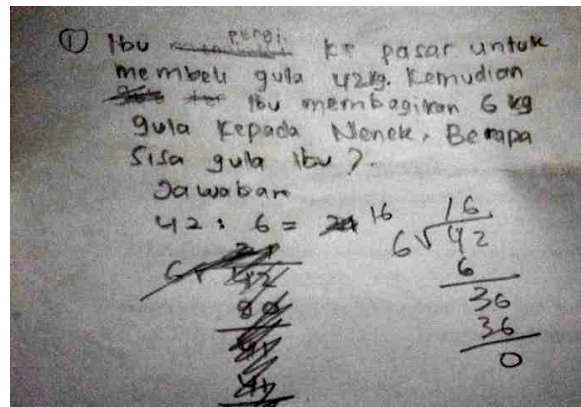 ① Ibu pergi ke pasar untuk
membeli gula 42kg. Kemudian
Ibu membagikan 6 kg
gula kepada Nenek. Berapa
Sisa gula ibu?.
Jawaban
42 : 6 = 16
16
6√42
6
36
36
0